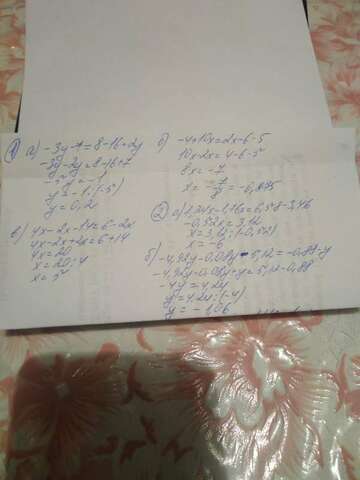 1 а) -3y-7=8-16+2y
-3y-2y=8-16+7
-5y=-1
y=-1:(-5)
y=0,2
б) -4+10x=2x-6-5
10x-2x=4-6-5
8x=-7
x=-7/8=-0,875
в) 4x-2x-14=6-2x
4x-2x+2x=6+14
4x=20
x=20:4
x=5
2 а) 1,24x-1,76x=6,58-3,46
-0,52x=3,12
x=3,12:(-0,52)
x=-6
б) -4,92y-0,08y+5,12=-0,88-y
y=4,24:(-4)
y=-1,06